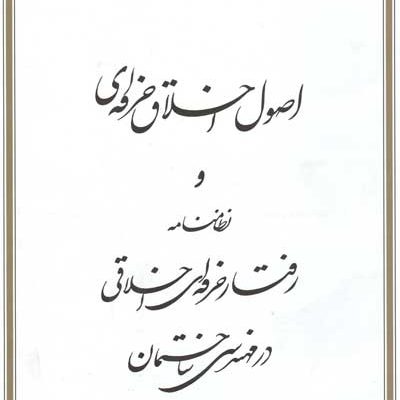 اصول اخلاق حرفه‌ای
و
نظامنامه
رفتار حرفه‌ای اخلاقی
در مهندسی ساختمان